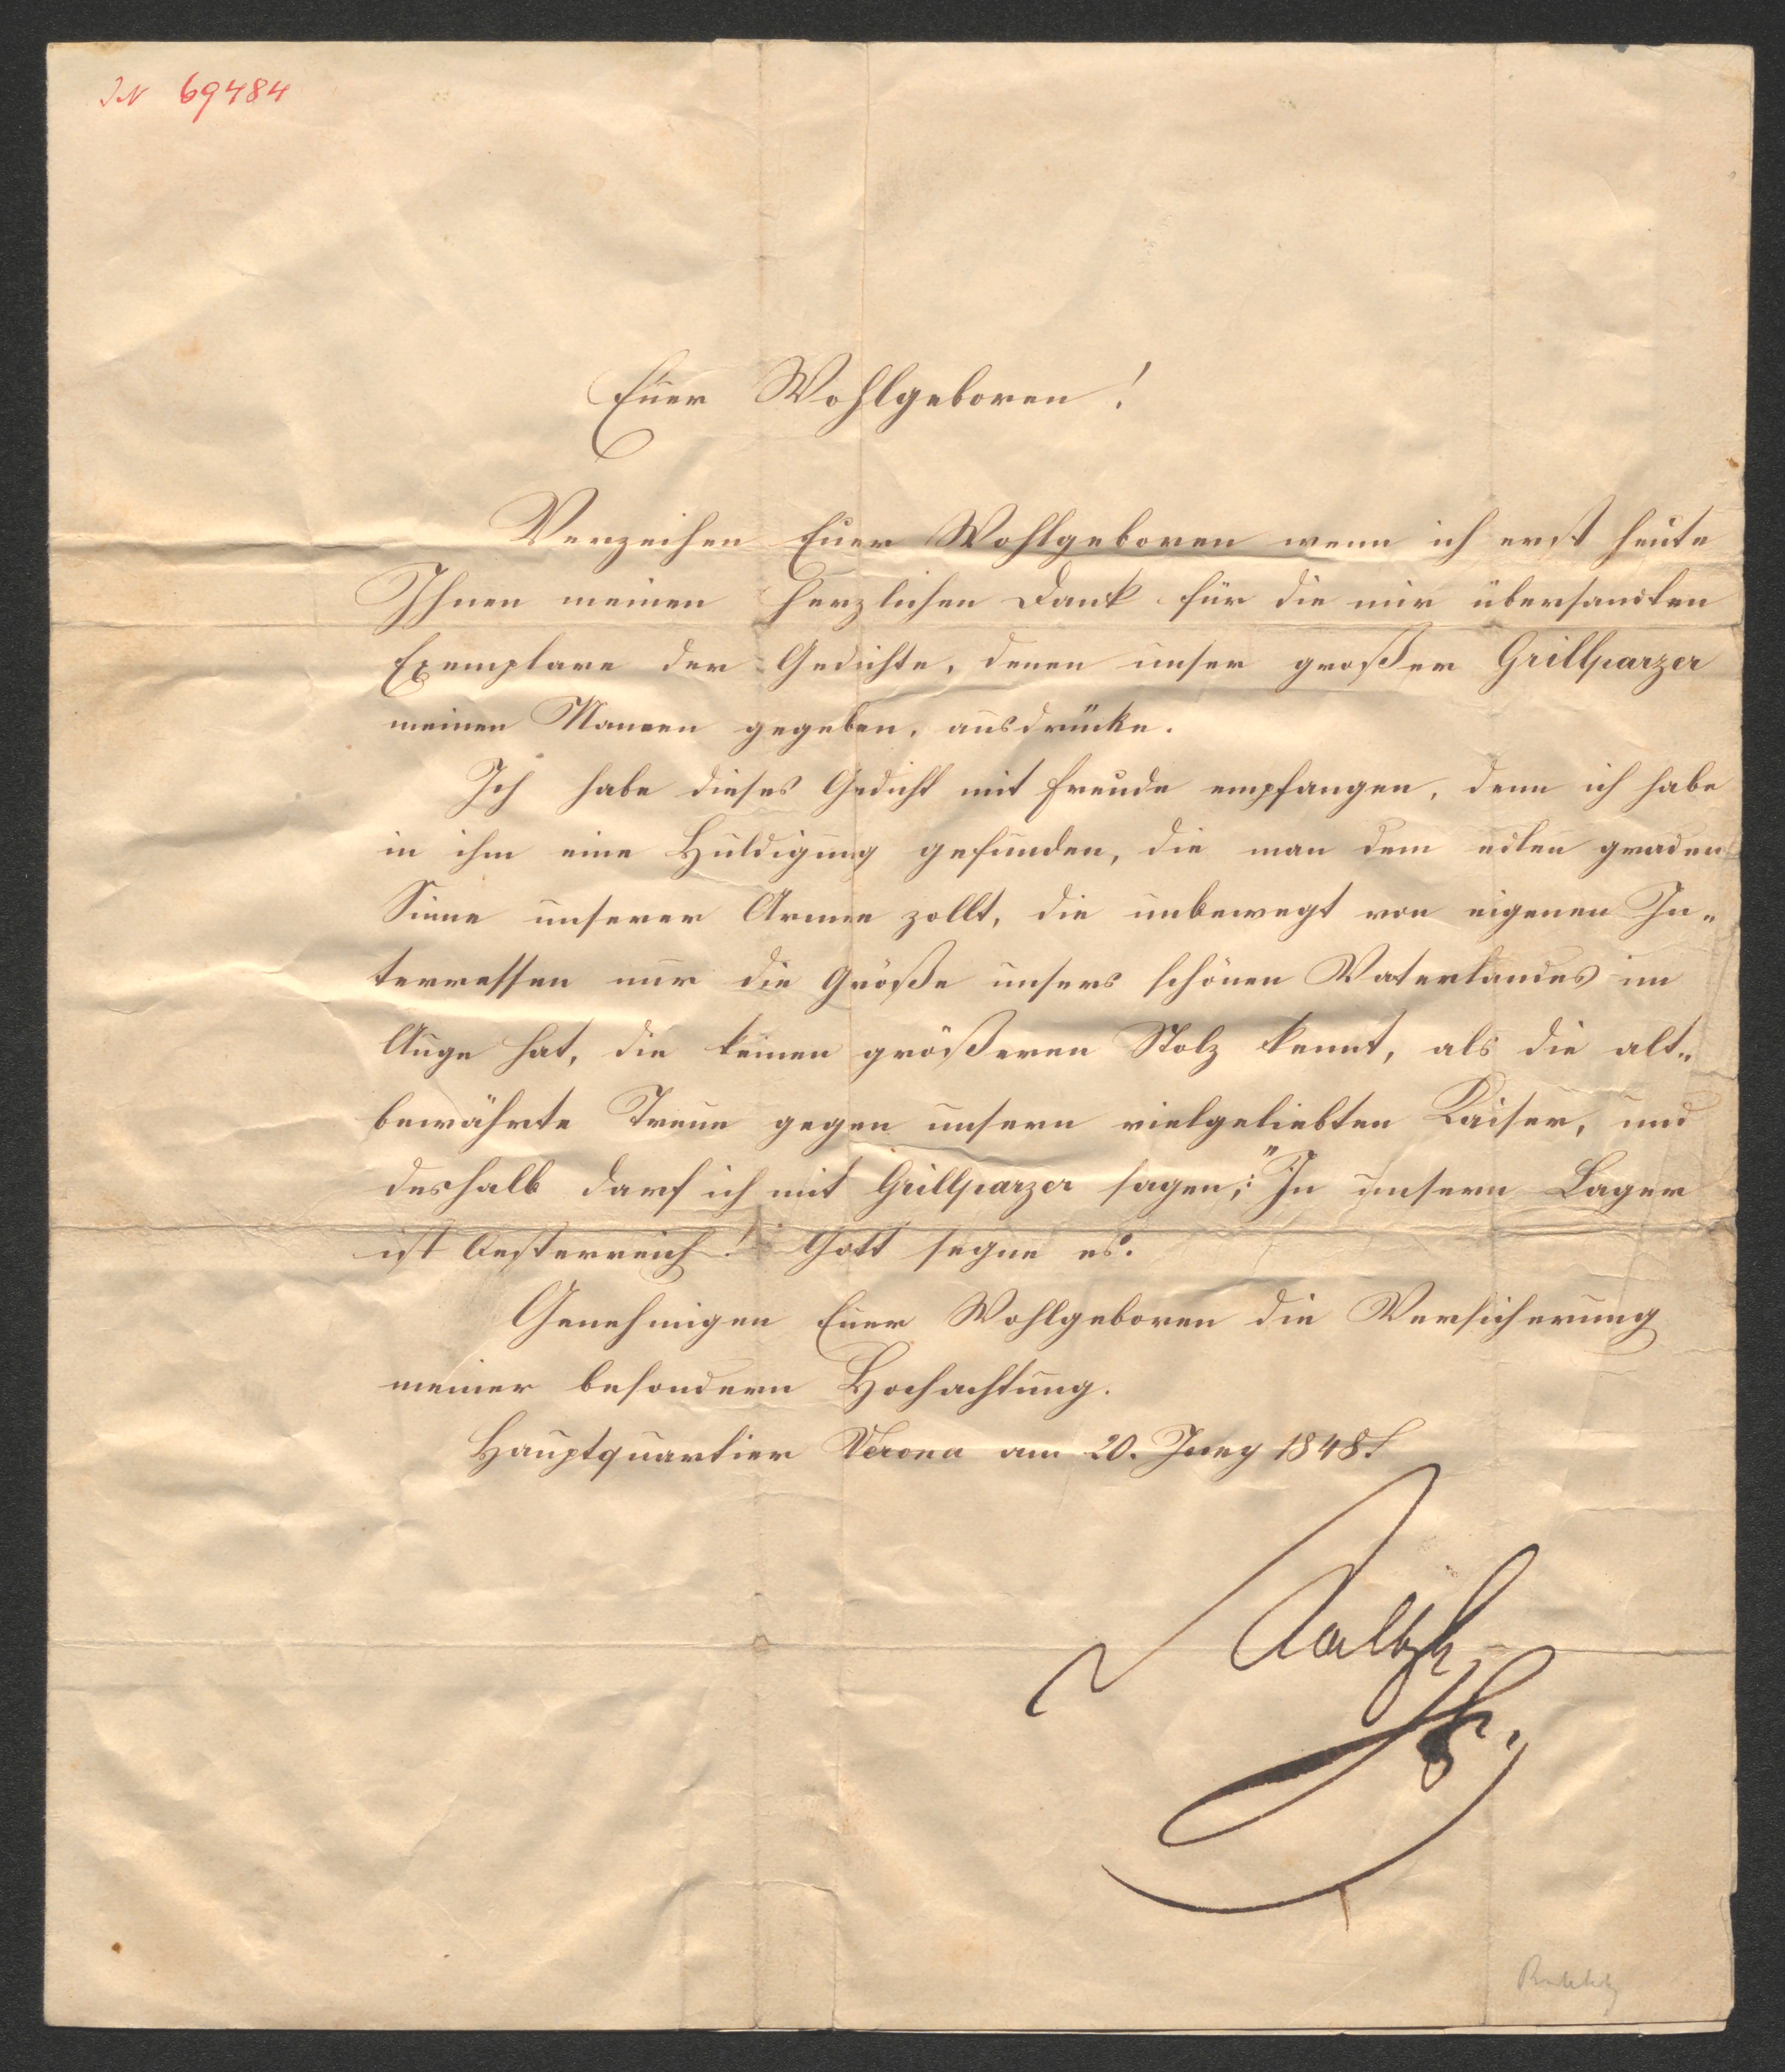 IN 69484
Euer Wohlgeboren!
Verzeihen Euer Wohlgeboren wenn ich erst heute
Ihnen meinen herzlichen Dank für die mir übersandten
Exemplare der Gedichte, denen unser großer Grillparzer
meinen Namen gegeben, ausdrücke.
Ich habe dieses Gedicht mit Freude empfangen, denn ich habe
in ihm eine Huldigung gefunden, die man dem edlen graden
Sinne unserer Armee zollt, die unbewegt von eigenen In-
terressen nur die Größe unsers schönen Vaterlandes im
Auge hat, die keinen größeren Stolz kennt, als die alt-
bewährte Treue gegen unsern vielgeliebten Kaiser, und
deshalb darf ich mit Grillparzer sagen: "In unsern Lager
ist Oesterreich!" Gott segne es.
Genehmigen Euer Wohlgeboren die Versicherung
meiner besondern Hochachtung.
Hauptquartier Verona am 20. Juny 1848.
Radetzky